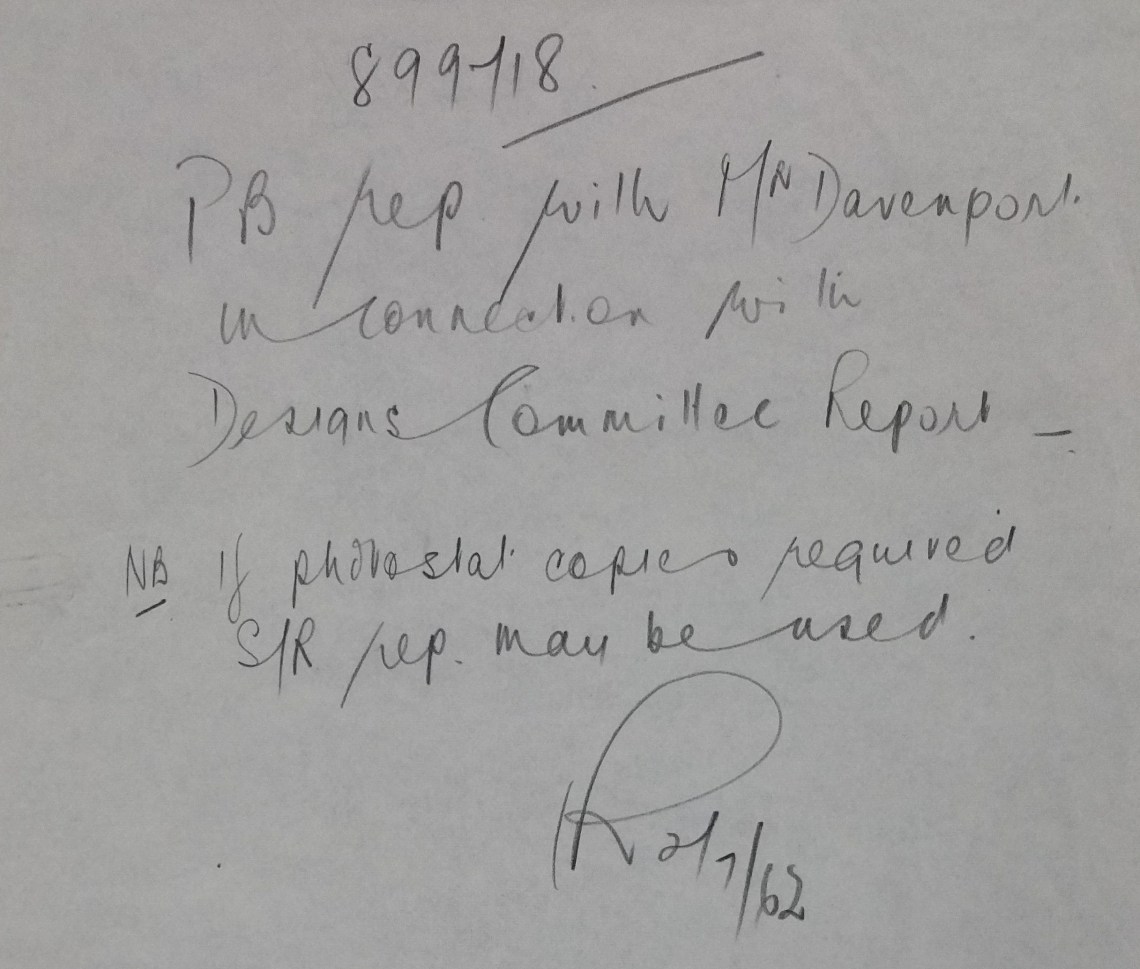 899718.
PB rep with Mr Davenport.
in connection with
Designs Committee Report –
NB If photostat copies required
S/R rep. may be used.
2/7/62